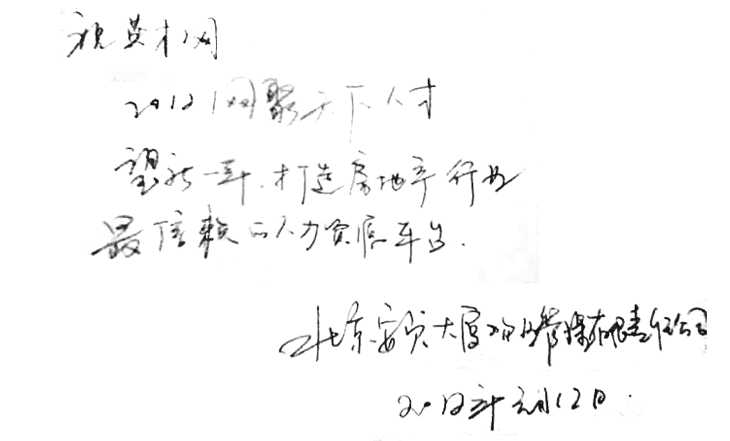 祝英才网
2012网聚天下人才
望新一年.打造房地产行业
最信赖的人力资源平台.
北京安贞大厦物业管理有限责任公司
2012年元月12日.